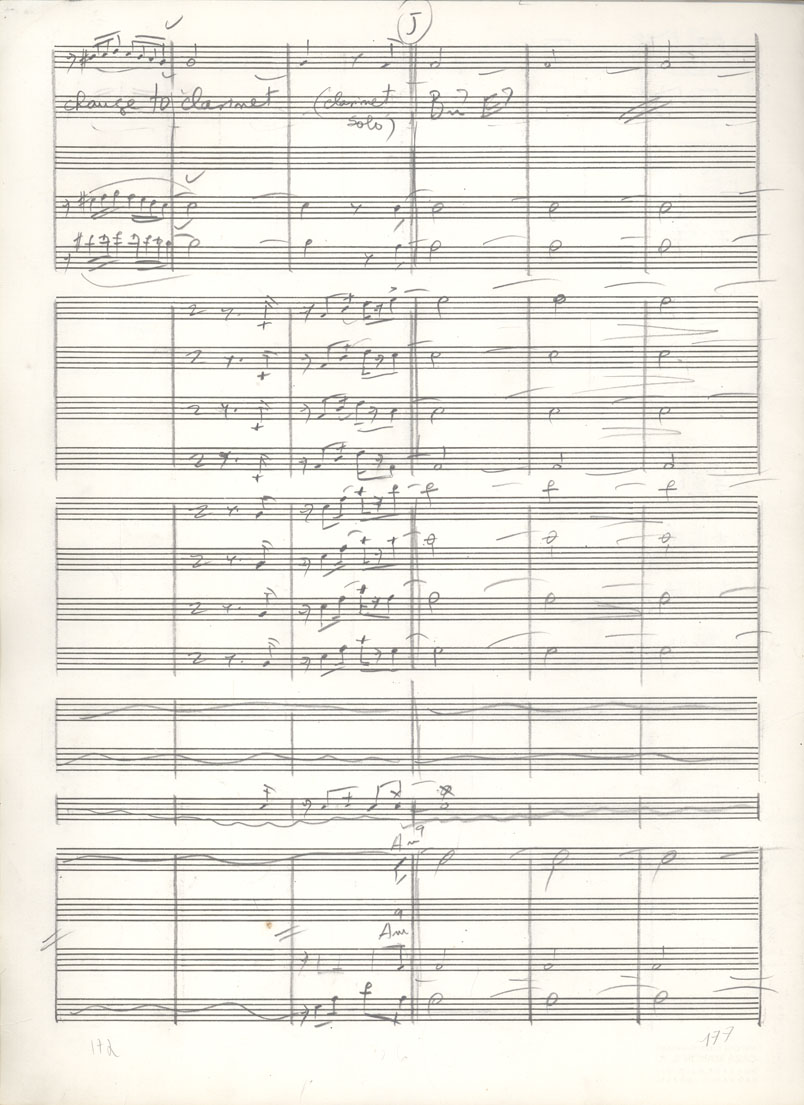 J
change to clarinet (clarinet solo) Bm7 E7
Am9
Am9
172 177